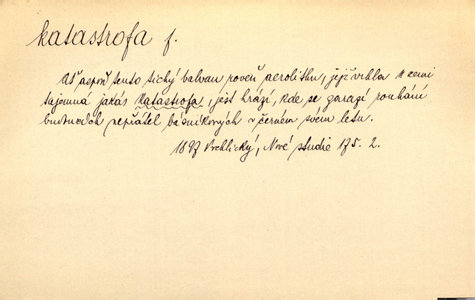 katastrofa f.
Ať aspoň tento tichý balvan roveň aerolithu, jejž vrhla k zemi
tajemná jakás katastrofa, jest hrází, kde se zarazí rouhání
budoucích nepřátel básníkových v černém svém letu.
1897 Vrchlický, Nové studie 175. 2.